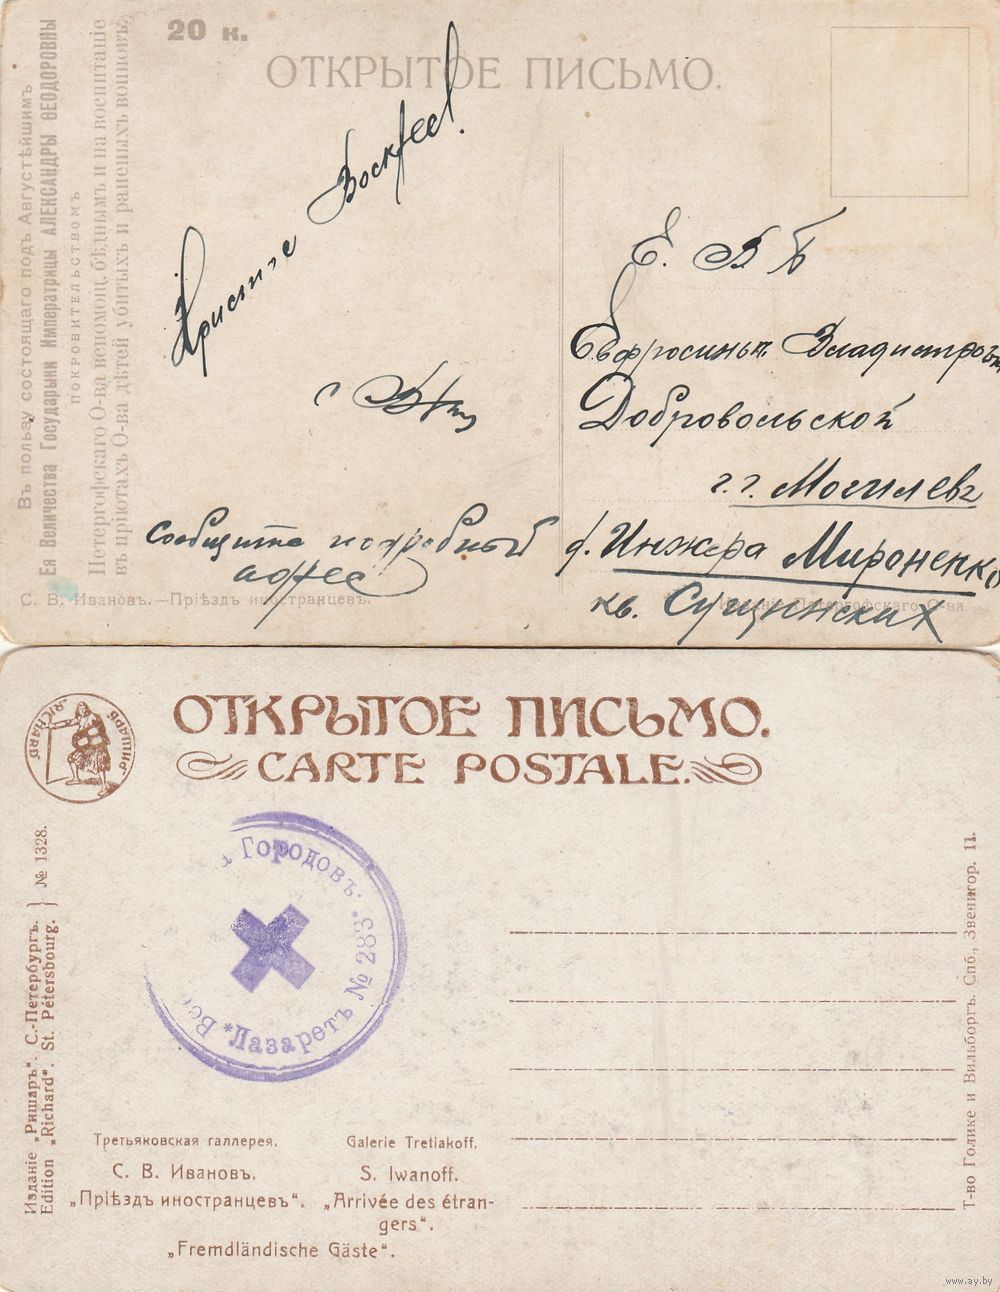 20 к.
ОТКРЫТОЕ ПИСЬМО.
Въ пользу состоящаго подъ Августѣйшимъ
Ея Величества Государыни Императрицы АЛЕКСАНДРЫ ѲЕОДОРОВНЫ
покровительствомъ
Петергофскаго О-ва вспомощ. бѣднымъ и на воспитаніе
въ пріютахъ О-ва дѣтей убитыхъ и раненыхъ воиновъ.
Христосъ Воскресе!
сообщите подробный
адрес
Е. В Б
Евфросиньи Владимировнѣ
Добровольской
г. г. Могилевъ
д. Инжера Мироненко
кв. Сущинских
С. В. Ивановъ.—Пріѣздъ иностранцевъ.
Изданіе Петергофскаго О-ва
РИШАРЪ „RICHARD“
ОТКРЫТОЕ ПИСЬМО.
CARTE POSTALE.
Городовъ.
Лазаретъ № 283
Изданіе „Ришаръ“. С.-Петербургъ.
Edition „Richard“. St. Pétersbourg. } № 1328.
Третьяковская галлерея. Galerie Tretiakoff.
С. В. Ивановъ. S. Iwanoff.
„Пріѣздъ иностранцевъ“. „Arrivée des étran-
gers“.
„Fremdländische Gäste“.
Т-во Голике и Вильборгъ. Спб., Звенигор. 11.
www.ay.by